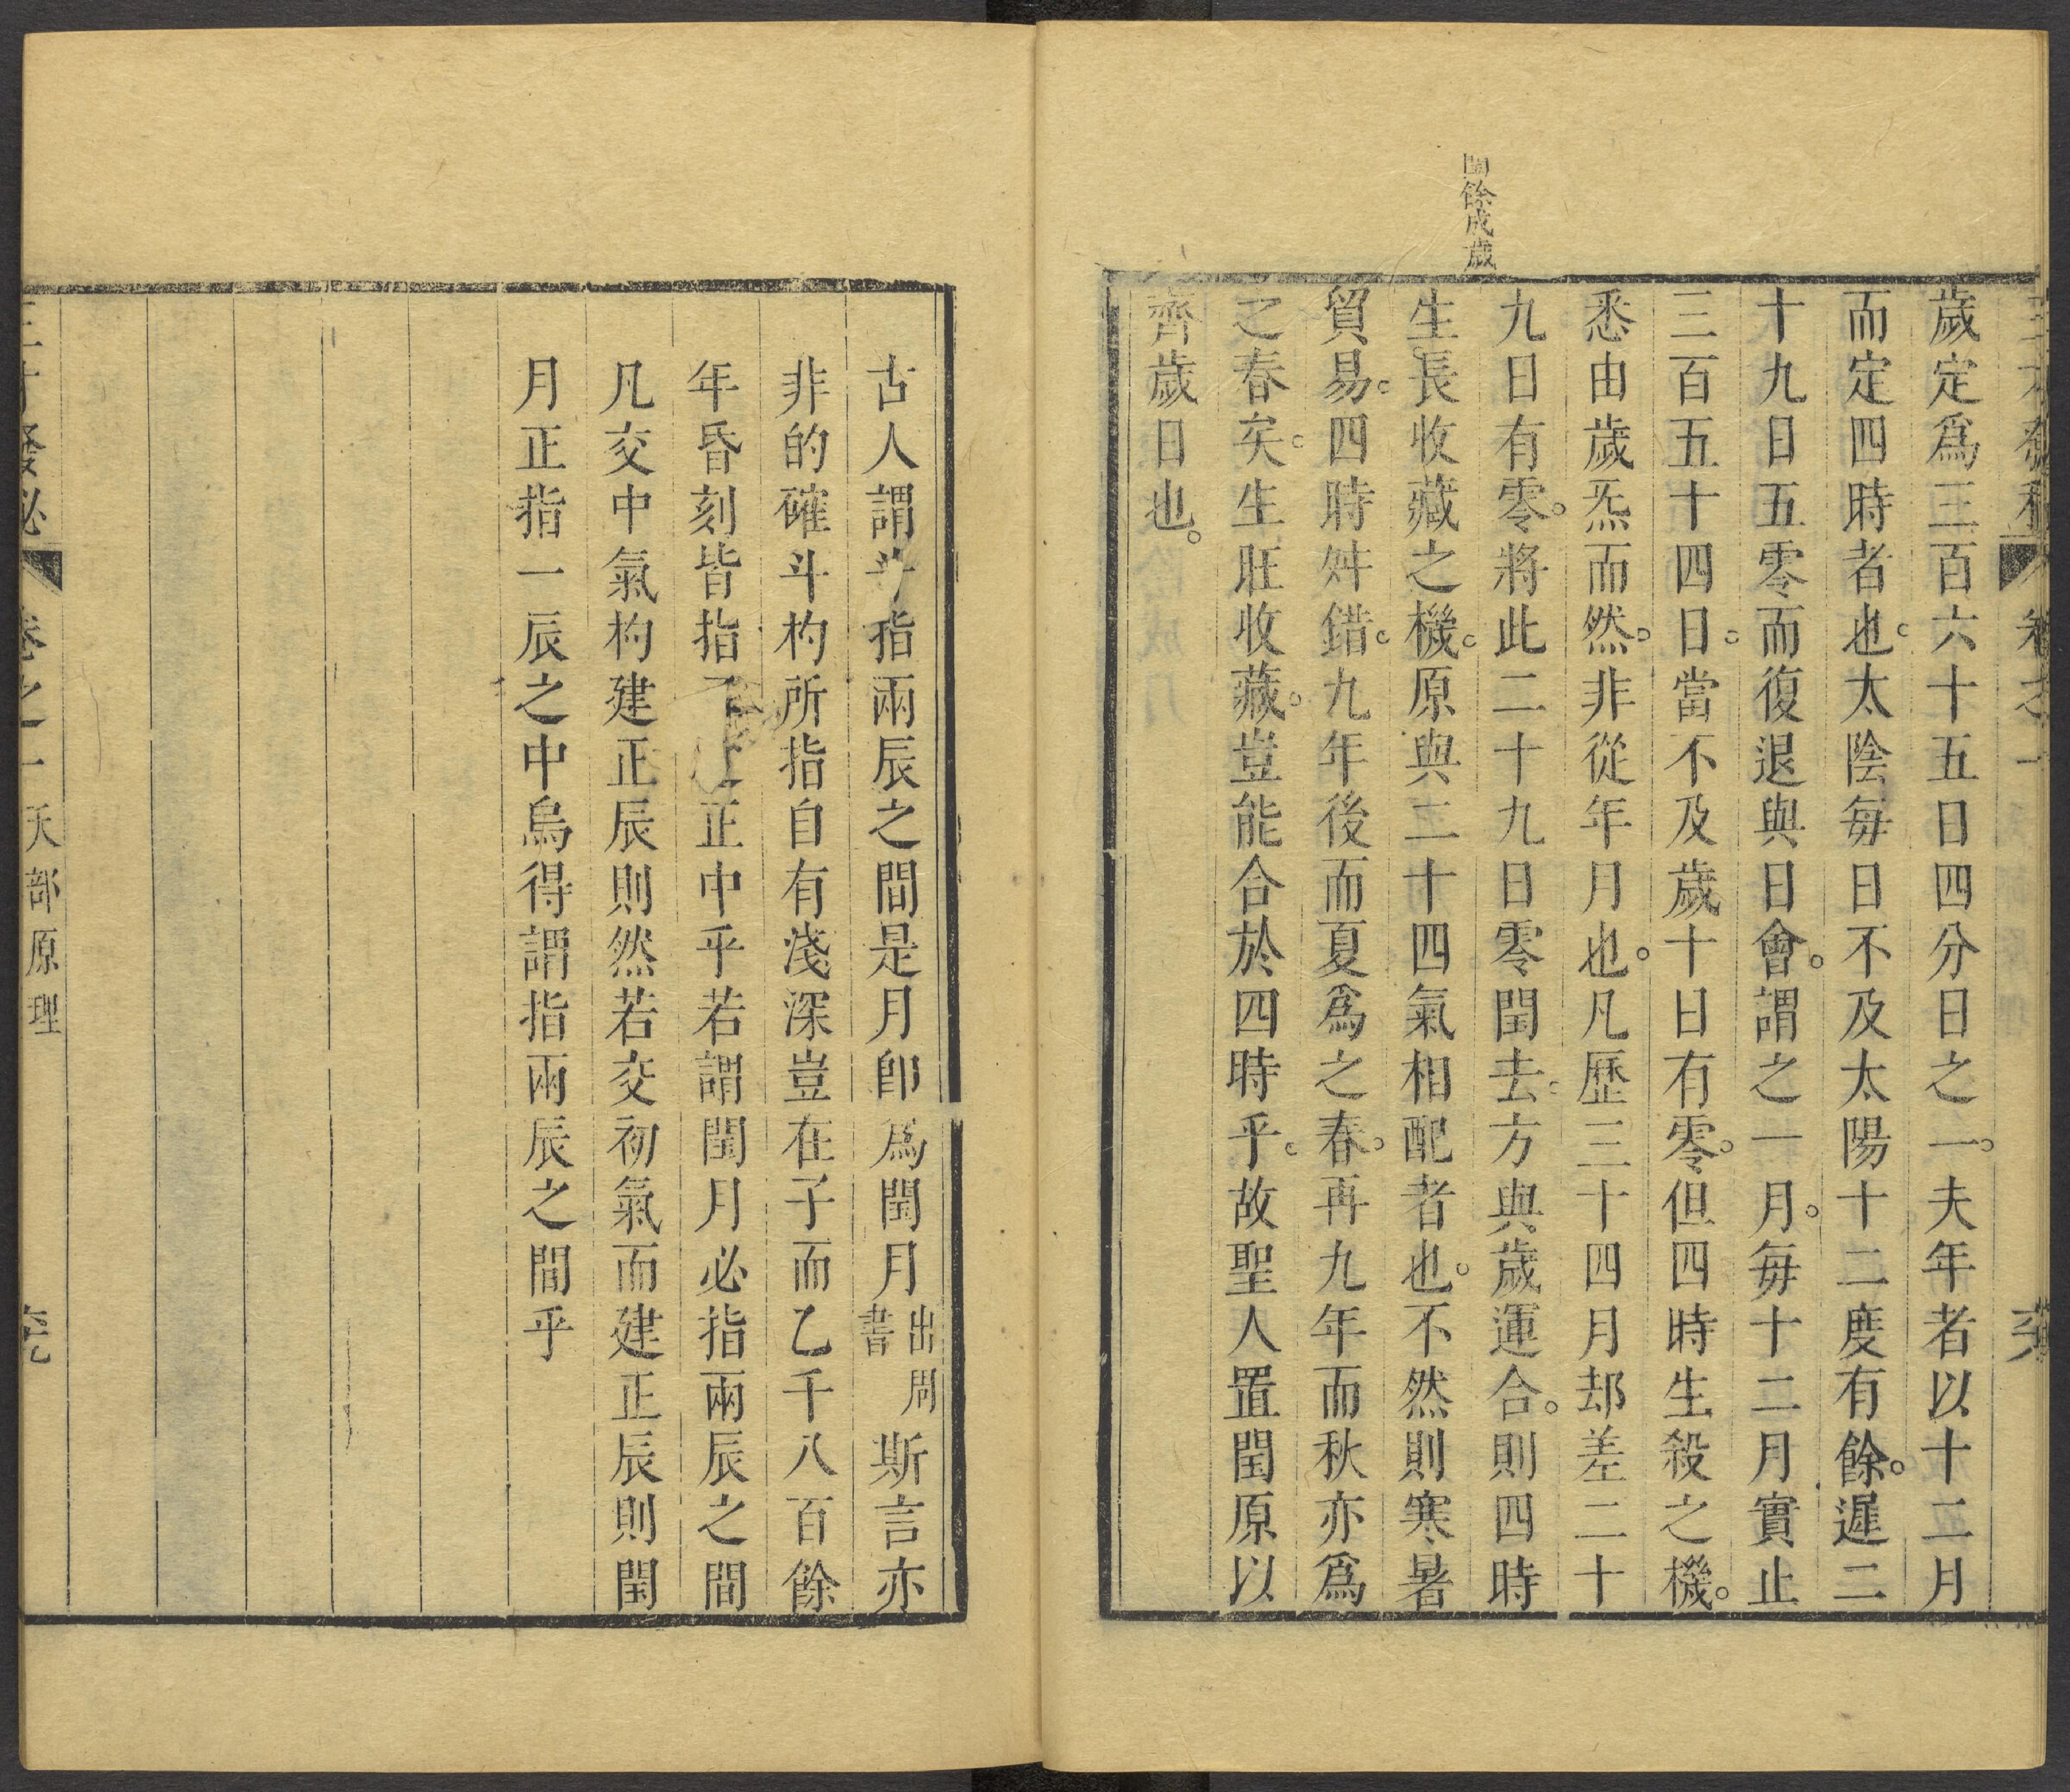 閏餘成歲
歲定爲三百六十五日四分日之一。夫年者以十二月
而定四時者也。太陰每日不及太陽十二度有餘。遲二
十九日五零而復退與日會。謂之一月。每十二月實止
三百五十四日。當不及歲十日有零。但四時生殺之機。
悉由歲炁而然。非從年月也。凡歷三十四月却差二十
九日有零。將此二十九日零閏去。方與歲運合。則四時
生長收藏之機。原與二十四氣相配者也。不然則寒暑
貿易。四時舛錯。九年後而夏爲之春。再九年而秋亦爲
之春矣。生旺收藏。豈能合於四時乎。故聖人置閏原以
齊歲日也。
古人謂斗指兩辰之間是月卽爲閏月出周書斯言亦
非的確斗杓所指自有淺深豈在子而乙千八百餘
年昏刻皆指正中乎若謂閏月必指兩辰之間
凡交中氣杓建正辰則然若交初氣而建正辰則閏
月正指一辰之中烏得謂指兩辰之間乎
卷之一 天部原理